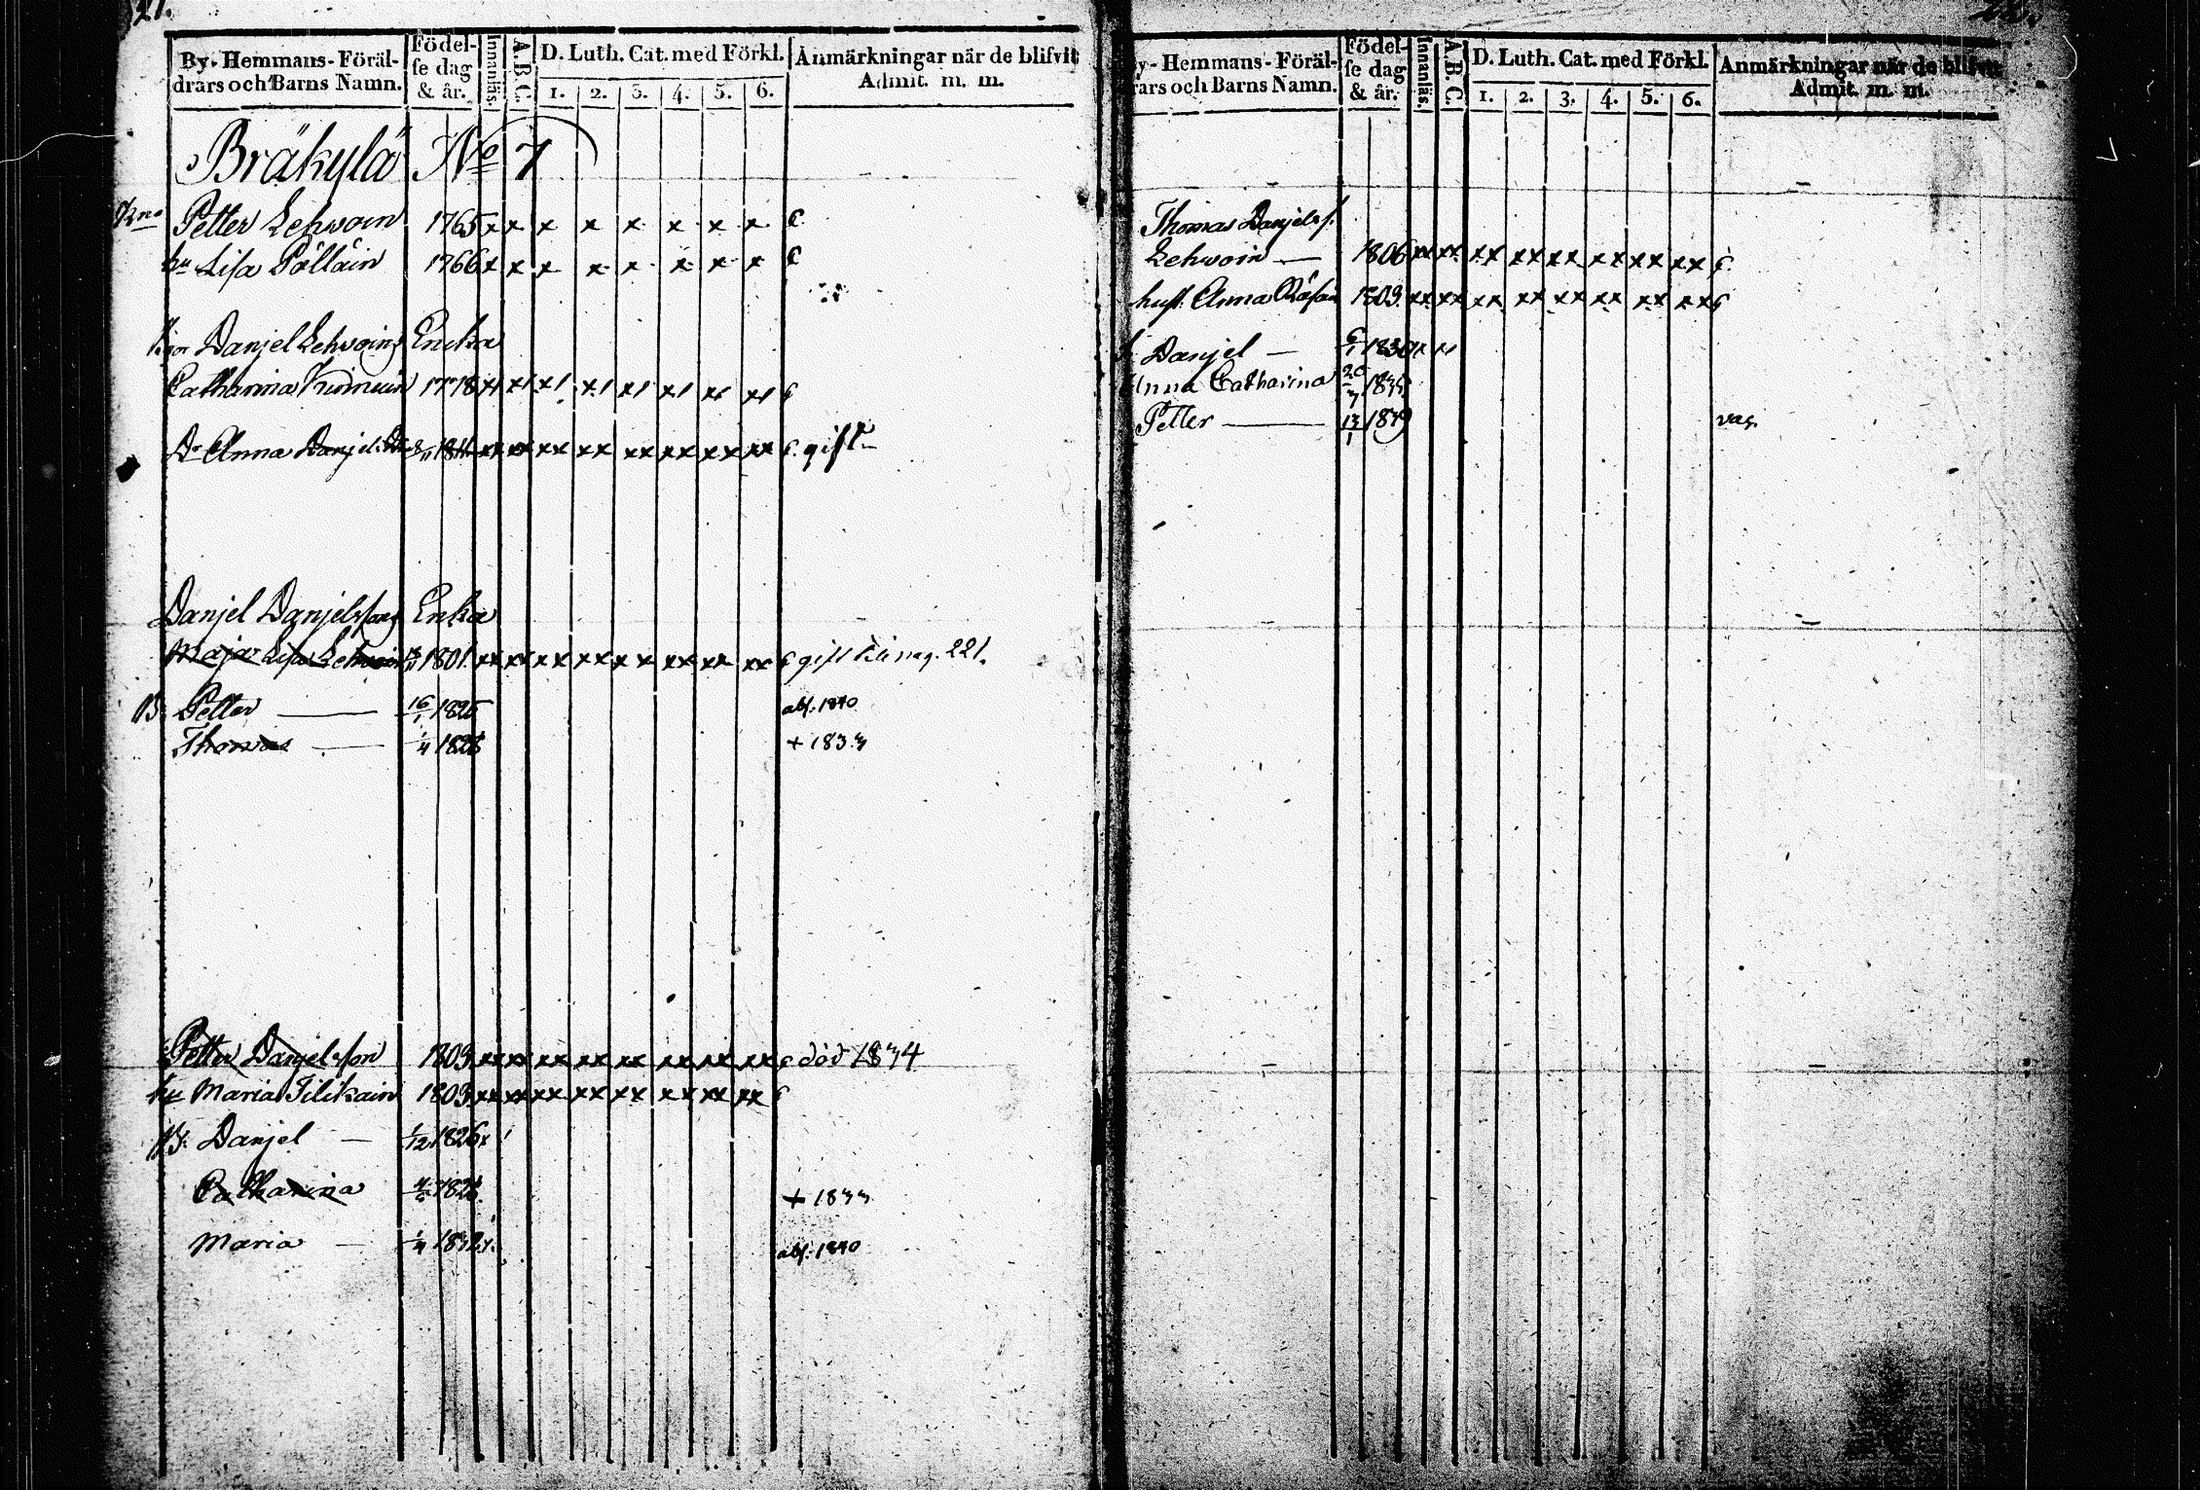 21.
By- Hemmans- Föräl-
drars och Barns Namn.
Födel-
se dag
& år.
Innanläs.
A.B.C.
D. Luth. Cat. med Förkl.
1. 2. 3. 4. 5. 6.
Anmärkningar när de blifvit
Admit. m. m.
Bräkylä No 7
Petter Lehvoin 1765 x x x x x x x x
hu Lisa Pölläin 1766 x x x x x x x x
Danjel Lehvoins Enka
Catharina 1778
Dr Anna Danjels Dr 1811 xx xx xx xx xx xx xx xx gift
Danjel Danjelssons Enka
Maja Lisa Lehvoin 1801 xx xx xx xx xx xx xx xx gift till pag. 221.
B. Petter — 16/1 1825 abs. 1840
Thomas — 1/4 1828 + 1833
Petter Danjelsson 1803 xx xx xx xx xx xx xx xx död 1834
hu Maria Tilikain 1803 xx xx xx xx xx xx xx xx
B. Danjel — 1/12 1826 x
Catharina 1828 + 1833
Maria — 1/4 1832 abs. 1840
By- Hemmans- Föräl-
drars och Barns Namn.
Födel-
se dag
& år.
Innanläs.
A.B.C.
D. Luth. Cat. med Förkl.
1. 2. 3. 4. 5. 6.
Anmärkningar när de blifvit
Admit. m. m.
Thomas Danjelss.
Lehvoin — 1806 xx xx xx xx xx xx xx xx
hust. Anna Räsäin 1809 xx xx xx xx xx xx xx xx
Danjel — 6/1 1830 x x
Anna Catharina 20/7
Petter — 13/1 1839 vac.